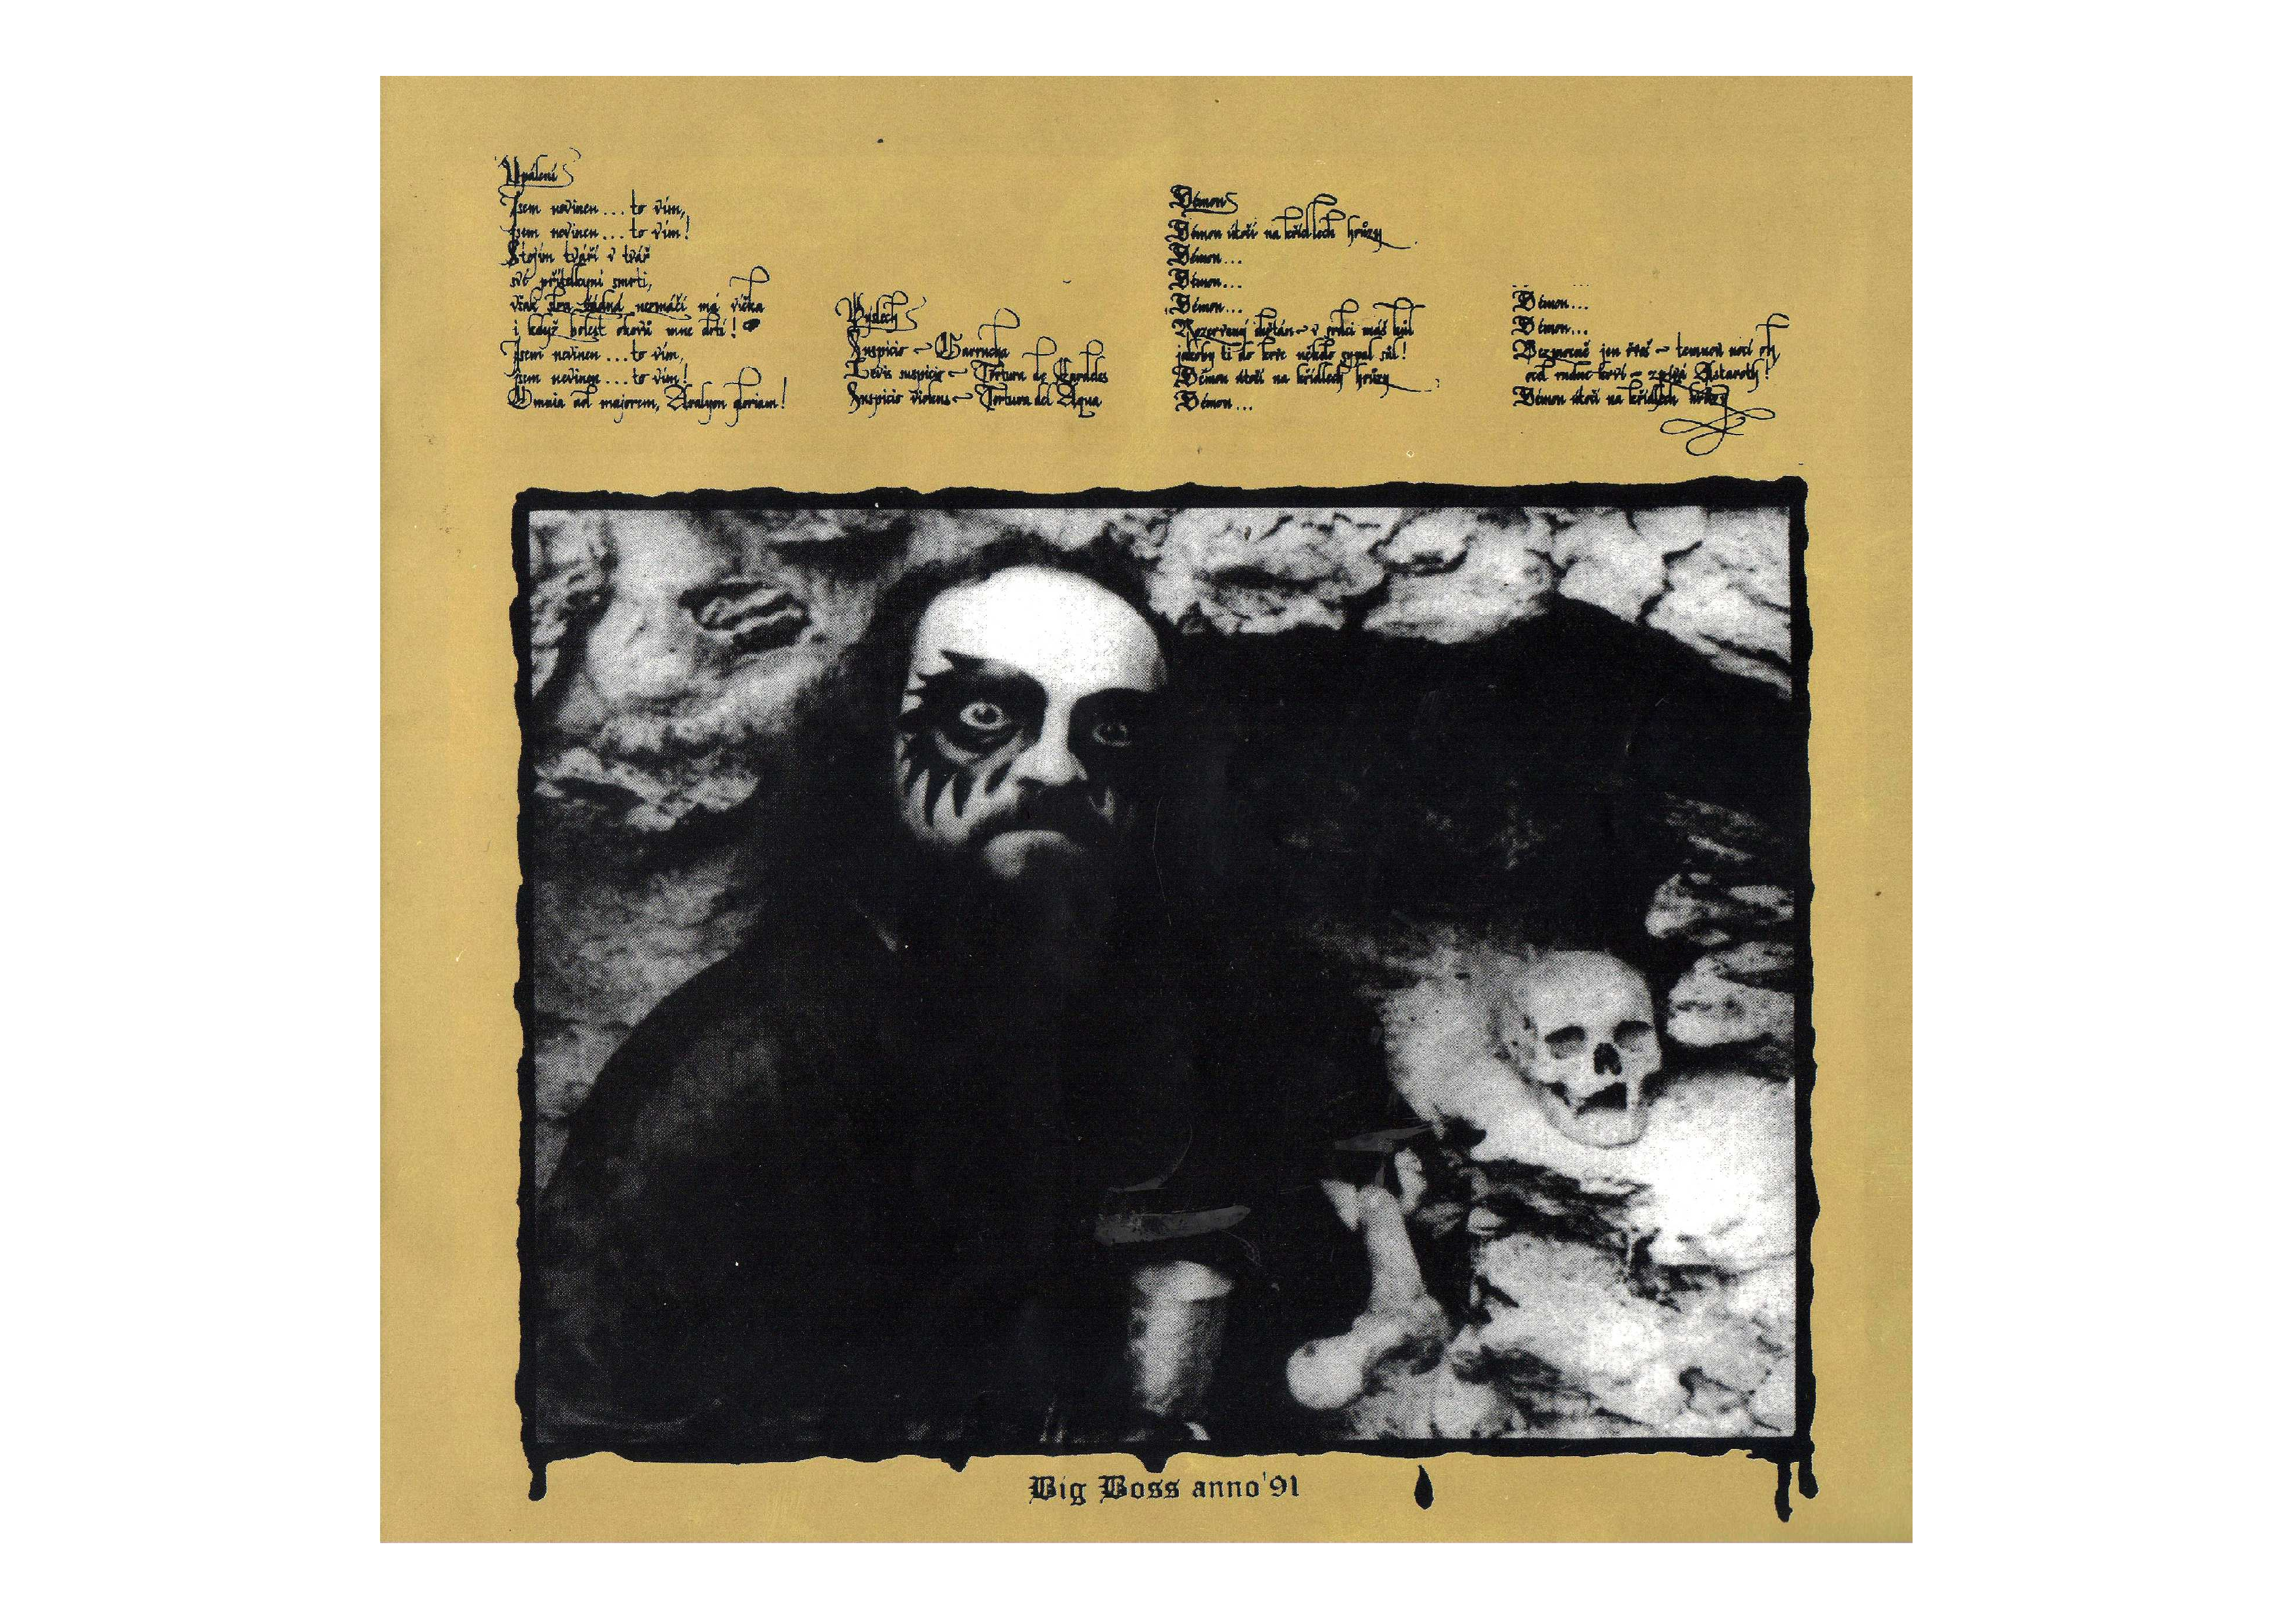 Upálení
Jsem nevinen... to vím,
jsem nevinen... to vím!
Stojím tváří v tvář
své přítelkyni smrti,
však slza žádná nesmáčí má víčka
i když bolest okovů mne drtí!
Jsem nevinen... to vím,
jsem nevinen... to vím!
Omnia ad majorem, gloriam!
Výslech
Suspicio - Garrucha
Levis suspicio - Tortura de Cordeles
Suspicio violens - Tortura del Aqua
Démon
Démon útočí na křídlech hrůzy
Démon...
Démon...
Démon...
Rozervaný chřtán - v srdci máš kůl
jakoby ti do kůže někdo sypal sůl!
Démon útočí na křídlech hrůzy
Démon...
Démon...
Démon...
Bezmocně jen řveš - temnou nocí
od rudne krví - zpívá Astaroth!
Démon útočí na křídlech hrůzy
Big Boss anno '91